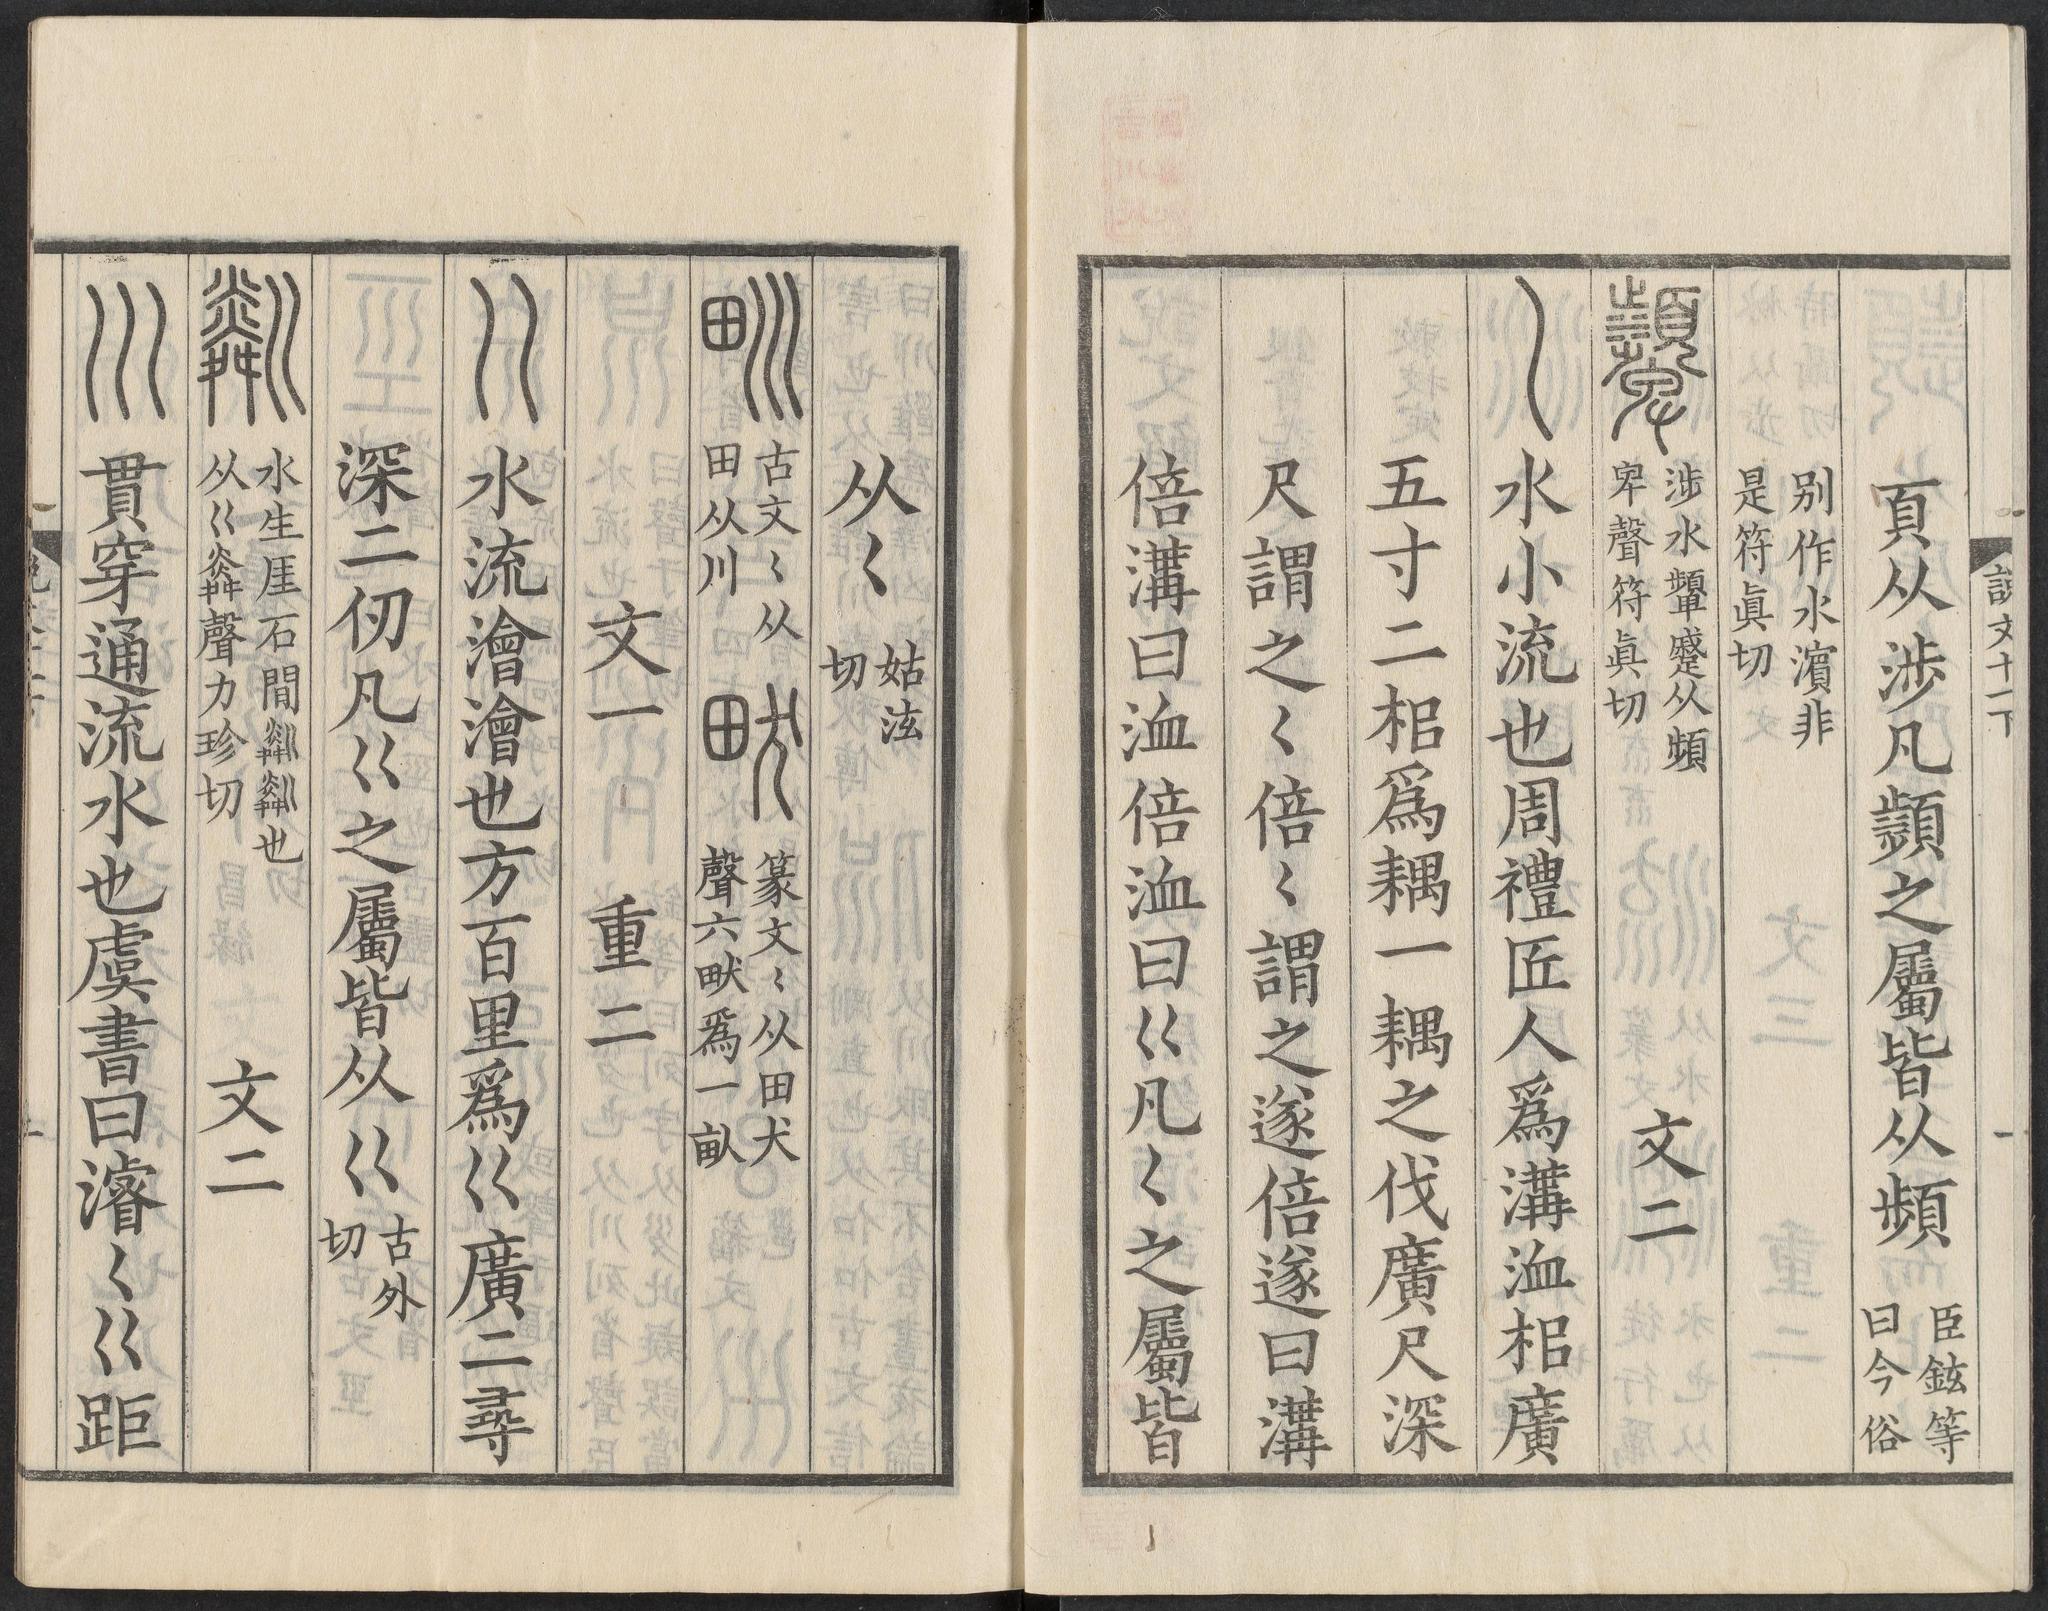 頁从涉凡顮之屬皆从頻臣鉉等曰今俗
别作水濵非是符眞切
涉水顰蹙从頻卑聲符眞切 文二
水小流也周禮匠人爲溝洫梠廣
五寸二梠爲耦一耦之伐廣尺深
尺謂之〱倍〱謂之遂倍遂曰溝
倍溝曰洫倍洫曰巜凡〱之屬皆
从〱姑泫切
𤰕古文〱从田从川 畎篆文〱从田犬聲六畎爲一畝
文一 重二
水流澮澮也方百里爲巜廣二尋
深二仞凡巜之屬皆从巜古外切
粼水生厓石間粼粼也从巜粦聲力珍切 文二
川貫穿通流水也虞書曰濬〱巜距
說文十一下
一